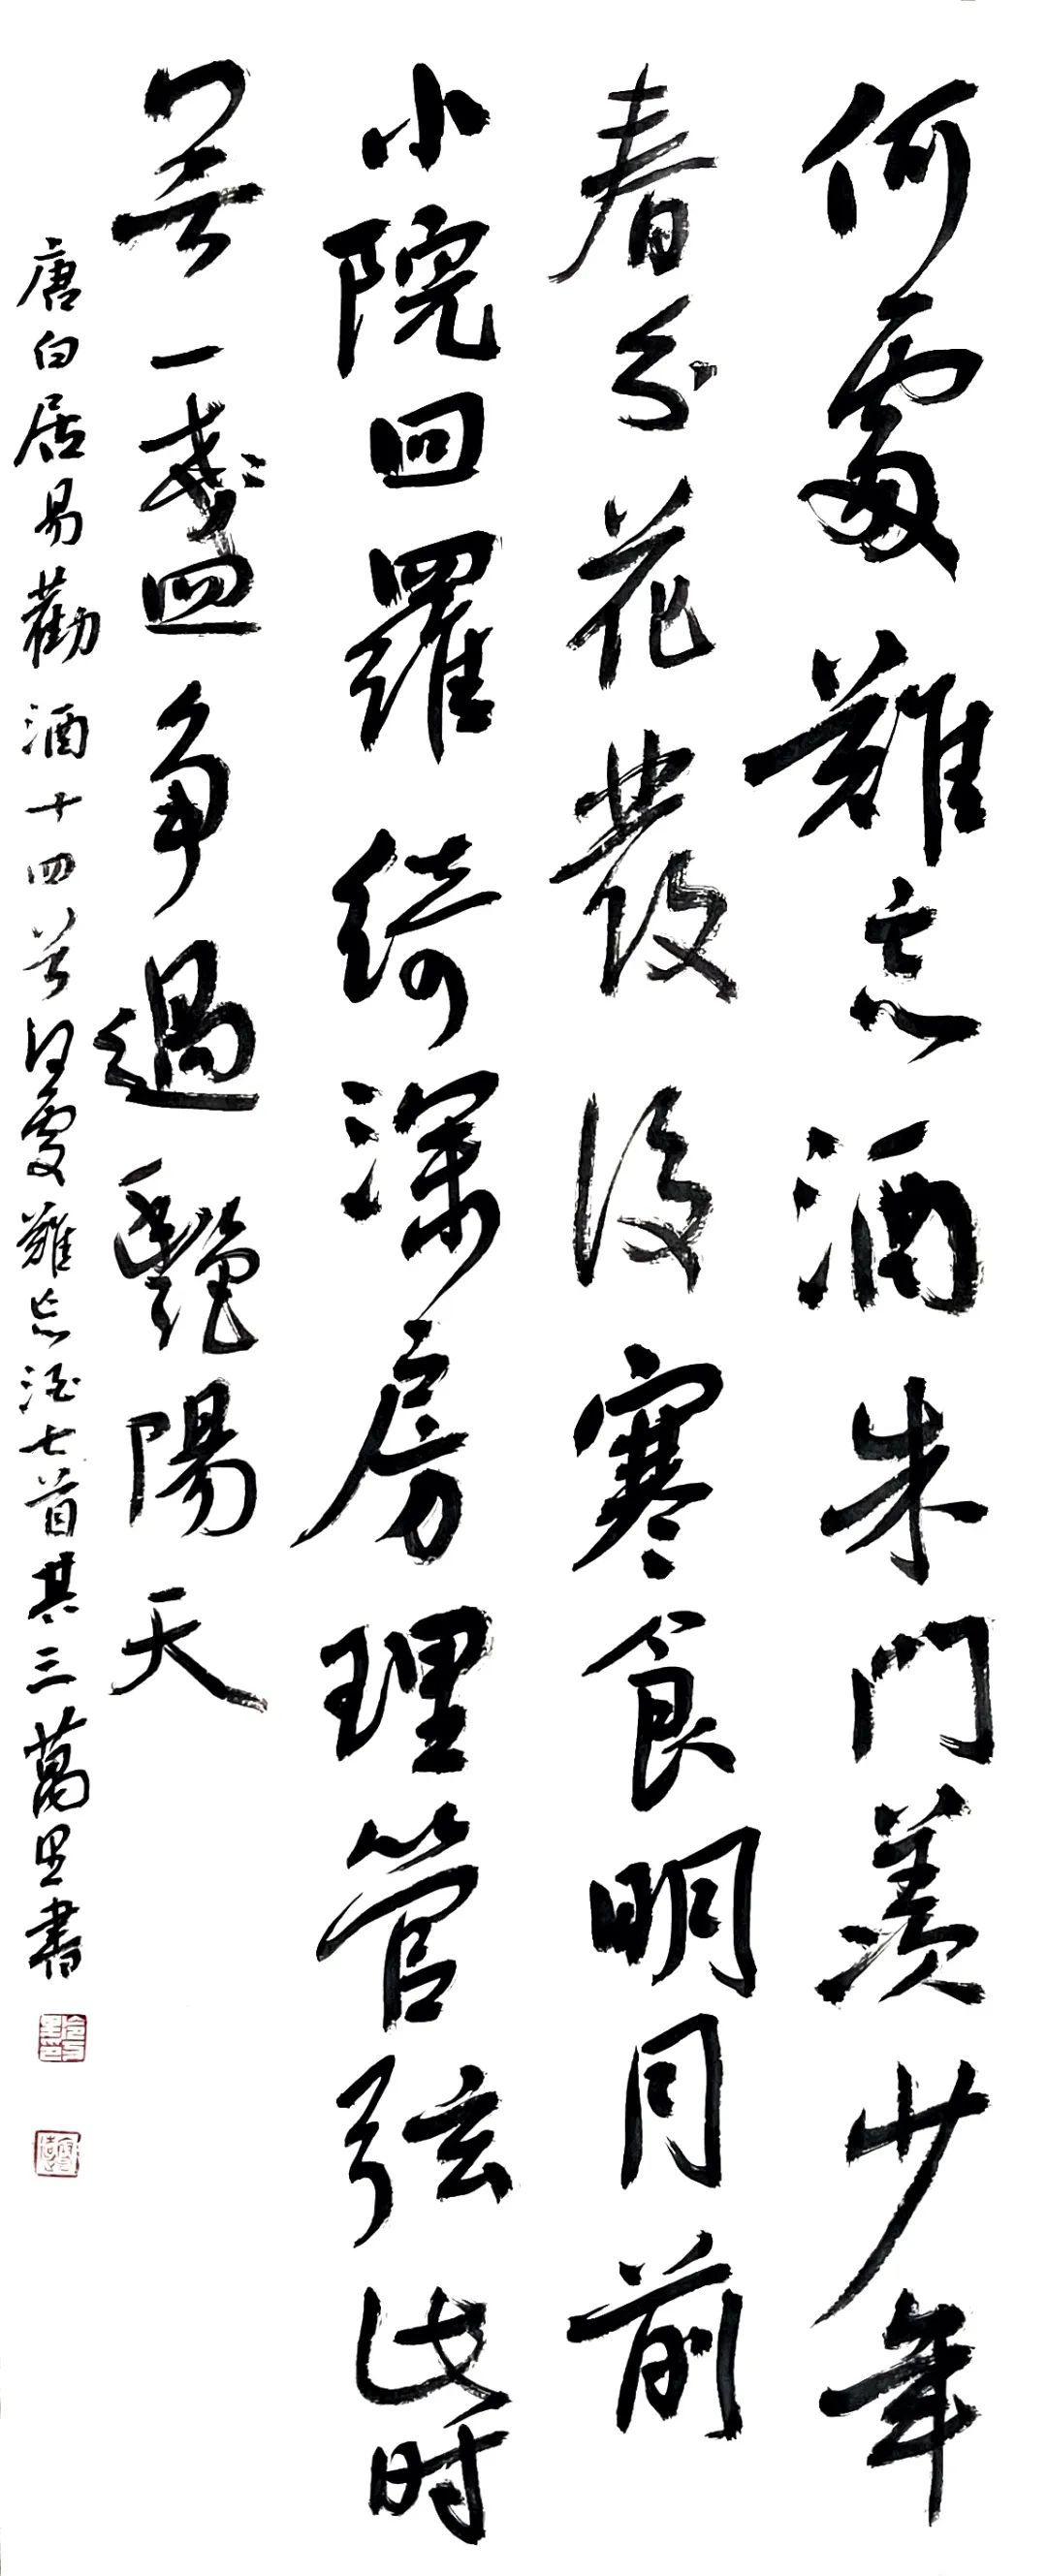 何處難忘酒朱門羨少年
春分花發後寒食明月前
小院回羅綺深房理管弦此时
無一盞争過艷陽天
唐白居易勸酒十四首何處難忘酒七首其三萬里書